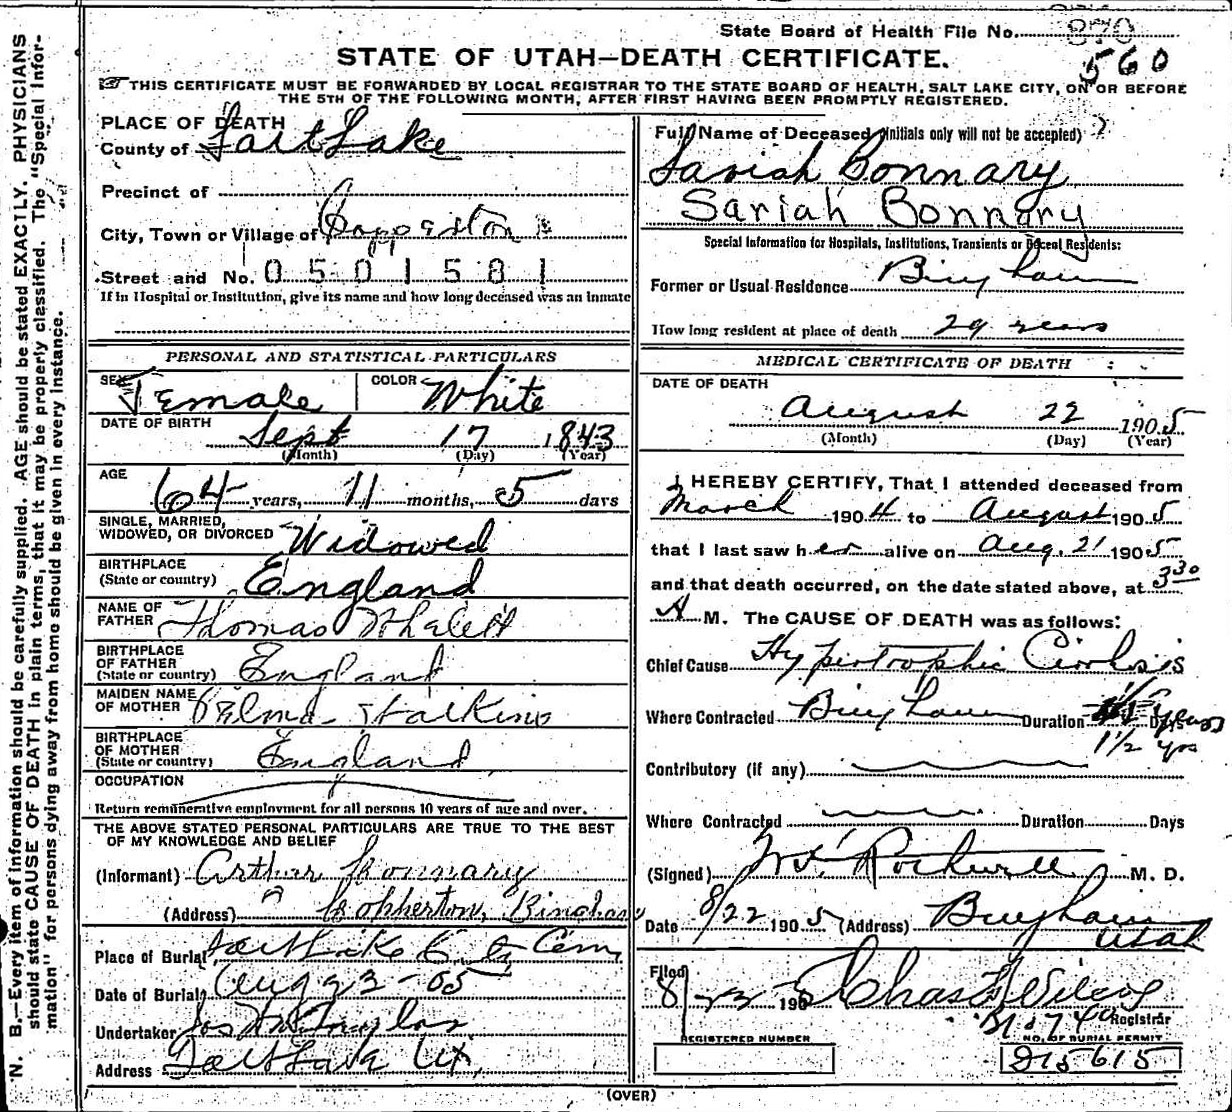 State Board of Health File No. 870
560
STATE OF UTAH—DEATH CERTIFICATE.
THIS CERTIFICATE MUST BE FORWARDED BY LOCAL REGISTRAR TO THE STATE BOARD OF HEALTH, SALT LAKE CITY, ON OR BEFORE
THE 5TH OF THE FOLLOWING MONTH, AFTER FIRST HAVING BEEN PROMPTLY REGISTERED.
PLACE OF DEATH
County of Salt Lake
Precinct of
City, Town or Village of Copperton
Street and No. 0501581
If in Hospital or Institution, give its name and how long deceased was an inmate
PERSONAL AND STATISTICAL PARTICULARS
SEX Female COLOR White
DATE OF BIRTH Sept 17 1843
(Month) (Day) (Year)
AGE 64 years, 11 months, 5 days
SINGLE, MARRIED,
WIDOWED, OR DIVORCED Widowed
BIRTHPLACE
(State or country) England
NAME OF
FATHER Thomas
BIRTHPLACE
OF FATHER
(State or country) England
MAIDEN NAME
OF MOTHER
BIRTHPLACE
OF MOTHER
(State or country) England
OCCUPATION
Return remunerative employment for all persons 10 years of age and over.
THE ABOVE STATED PERSONAL PARTICULARS ARE TRUE TO THE BEST
OF MY KNOWLEDGE AND BELIEF
(Informant) Arthur Bonnary
(Address) Copperton, Bingham
Place of Burial Salt Lake City Cem
Date of Burial Aug 23-05
Undertaker Jos Wm Taylor
Address Salt Lake Ut.
Full Name of Deceased (Initials only will not be accepted) ?
Sariah Bonnary
Sariah Bonnary
Special Information for Hospitals, Institutions, Transients or Recent Residents:
Former or Usual Residence Bingham
How long resident at place of death 29 years
MEDICAL CERTIFICATE OF DEATH
DATE OF DEATH
August 22 1905
(Month) (Day) (Year)
I HEREBY CERTIFY, That I attended deceased from
March 1904 to August 1905
that I last saw her alive on Aug. 21 1905
and that death occurred, on the date stated above, at 3 30
A M. The CAUSE OF DEATH was as follows:
Chief Cause Hypertrophic Cirrhosis
Where Contracted Bingham Duration Days years
1 1/2 yrs
Contributory (if any)
Where Contracted Duration Days
(Signed) Rockwell M. D.
Date 8/22 1905 (Address) Bingham
Utah
Filed
8/23 1905 Chas Wilcox
Registrar
REGISTERED NUMBER
NO. OF BURIAL PERMIT
D15615
(OVER)
N. B.—Every item of information should be carefully supplied. AGE should be stated EXACTLY. PHYSICIANS
should state CAUSE OF DEATH in plain terms, that it may be properly classified. The "Special Infor-
mation" for persons dying away from home should be given in every instance.